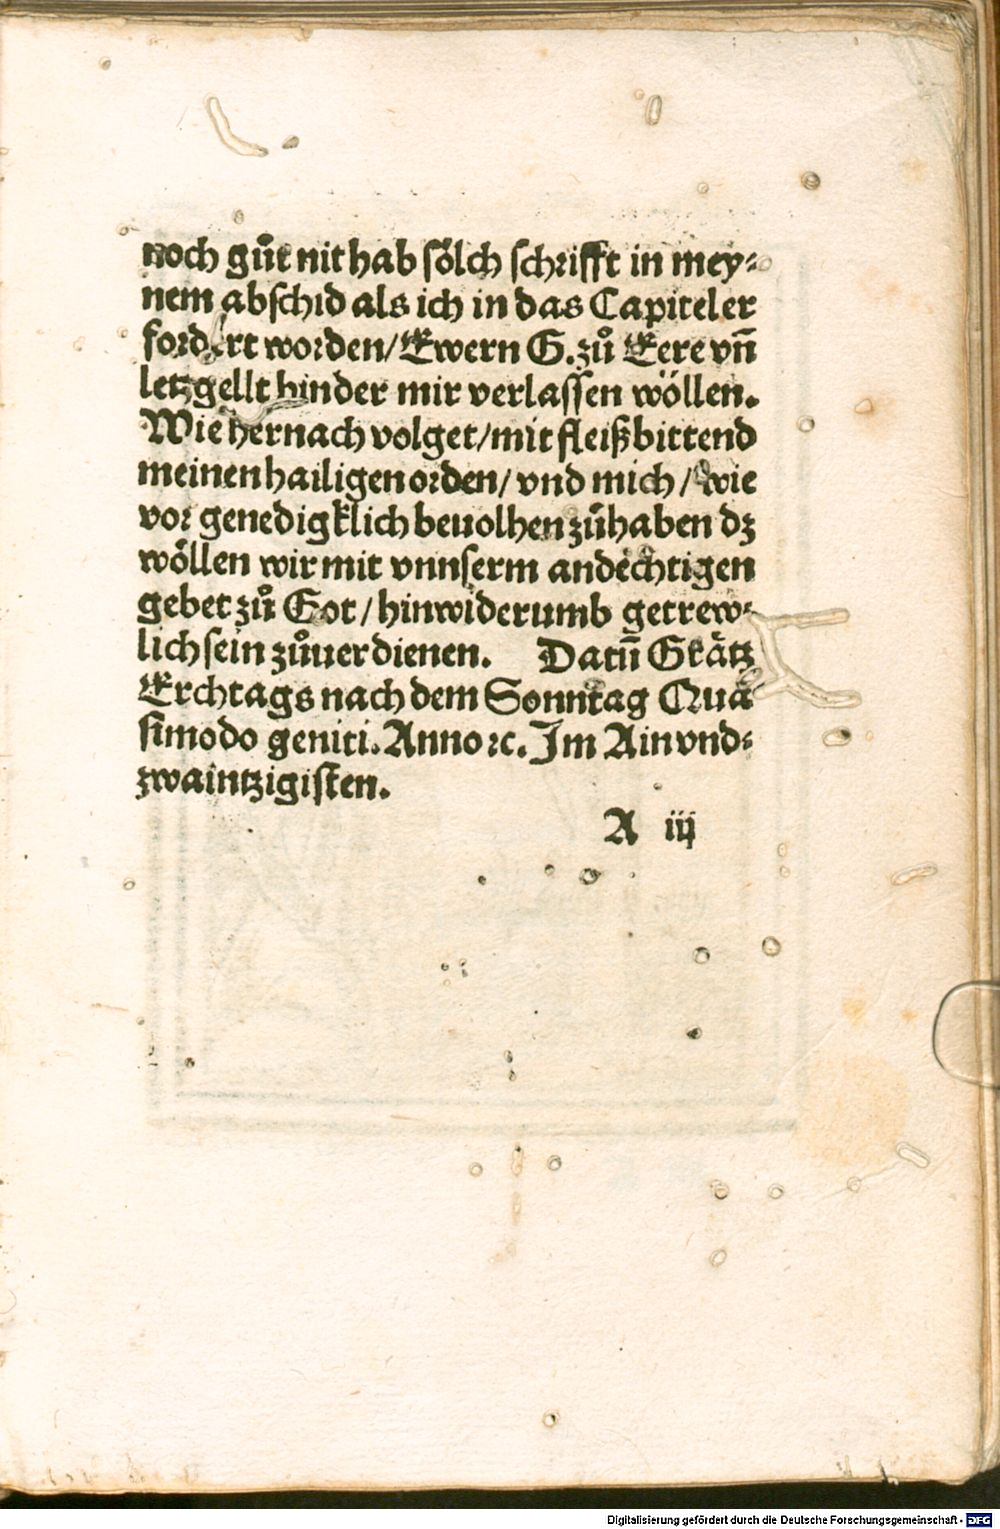 noch gůt nit hab sölch schrifft in mey⸗
nem abschid als ich in das Capitel er
fordert worden/ Ewern G. zů Eere vn̄
letzgellt hinder mir verlassen wöllen.
Wie hernach volget/ mit fleiß bittend
meinen hailigen orden/ vnd mich/ wie
vor genedigklich beuolhen zůhaben dz
wöllen wir mit vnnserm andechtigen
gebet zů Got/ hinwiderumb getrew⸗
lich sein zůuerdienen. Datū Gråtz
Erchtags nach dem Sonntag Qua
simodo geniti. Anno ꝛc. Im Ain vnd⸗
zwaintzigisten.
A iij
Digitalisierung gefördert durch die Deutsche Forschungsgemeinschaft - DFG